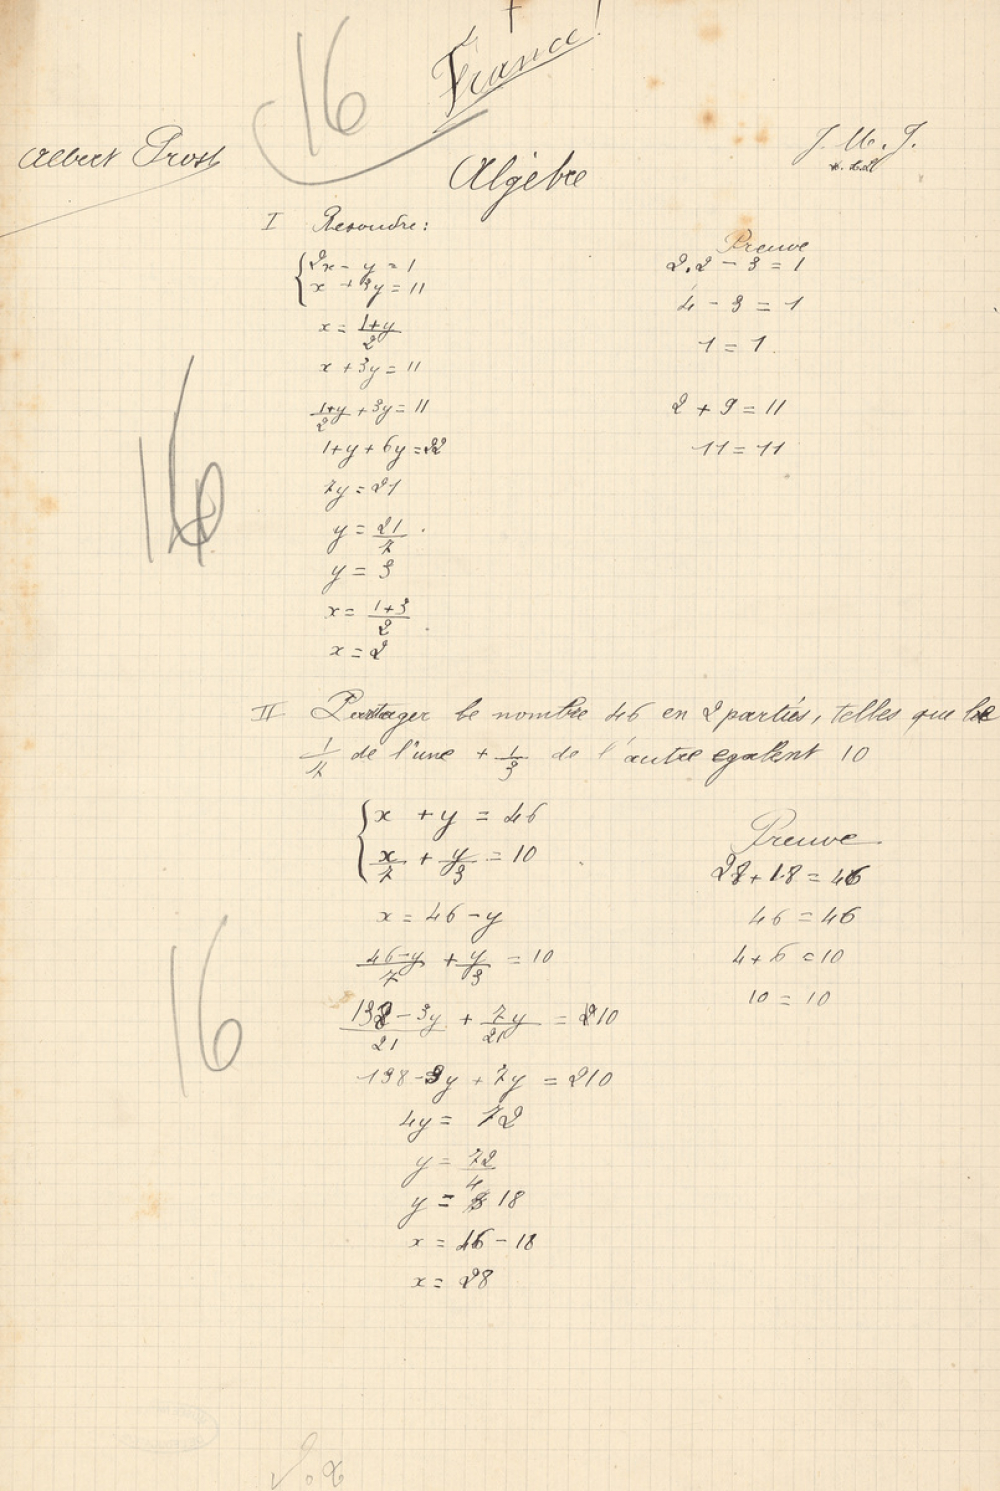 16 France!
Albert Prost
J. M. J.
Algèbre
I Resoudre:
{2x - y = 1
x + 3y = 11
x = 1+y/2
x + 3y = 11
1+y/2 + 3y = 11
1+y+6y = 22
7y = 21
y = 21/7
y = 3
x = 1+3/2
x = 2
Preuve
2.2 - 3 = 1
4 - 3 = 1
1 = 1
2 + 9 = 11
11 = 11
16
II Partager le nombre 46 en 2 parties, telles que le
1/7 de l'une + 1/3 de l'autre egalent 10
{x + y = 46
x/7 + y/3 = 10
x = 46 - y
46-y/7 + y/3 = 10
138-3y/21 + 7y/21 = 210
138-3y + 7y = 210
4y = 72
y = 72/4
y = 18
x = 46 - 18
x = 28
Preuve
28 + 18 = 46
46 = 46
4 + 6 = 10
10 = 10
16